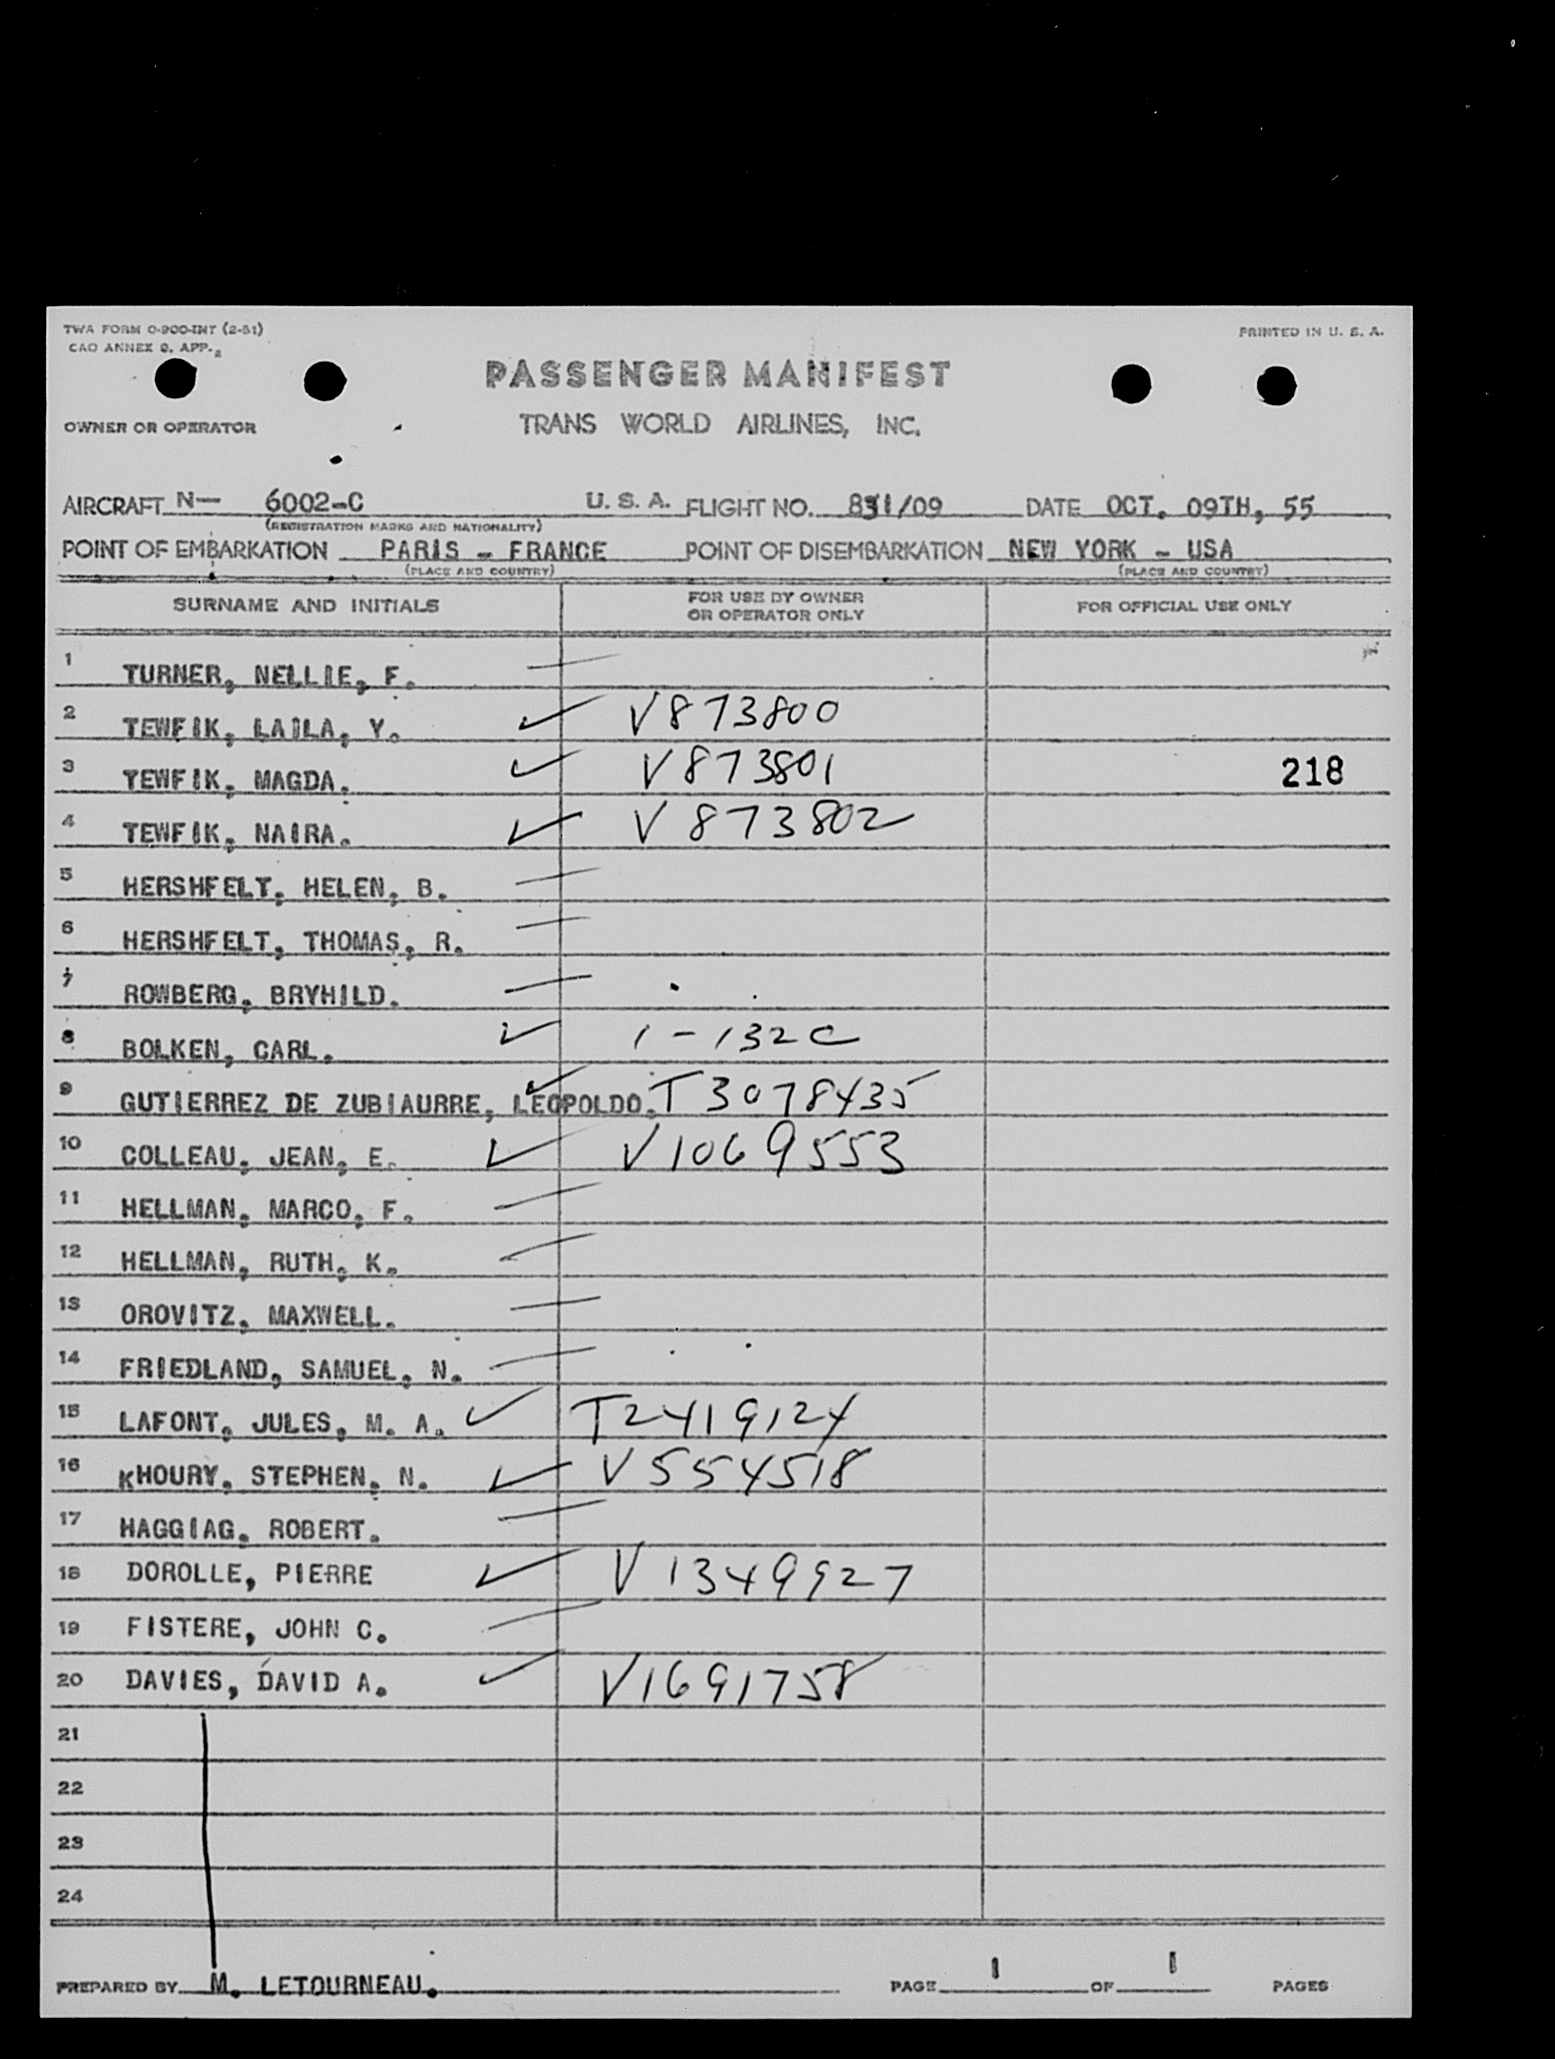 TWA FORM O-900-INT (2-51)
CAO ANNEX 9, APP. 2
PRINTED IN U. S. A.
PASSENGER MANIFEST
OWNER OR OPERATOR
TRANS WORLD AIRLINES, INC.
AIRCRAFT N— 6002-C U. S. A. FLIGHT NO. DATE OCT. 09TH, 55
(REGISTRATION MARKS AND NATIONALITY)
POINT OF EMBARKATION PARIS - FRANCE POINT OF DISEMBARKATION NEW YORK - USA
(PLACE AND COUNTRY) (PLACE AND COUNTRY)
SURNAME AND INITIALS FOR USE BY OWNER OR OPERATOR ONLY FOR OFFICIAL USE ONLY
1 TURNER, NELLIE, F.
2 TEWFIK, LAILA, Y. V873800
3 TEWFIK, MAGDA. V873801 218
4 TEWFIK, NAIRA. V873802
5 HERSHFELT, HELEN, B.
6 HERSHFELT, THOMAS, R.
7 ROWBERG, BRYHILD.
8 BOLKEN, CARL. 1-132C
9 GUTIERREZ DE ZUBIAURRE, LEOPOLDO. T3078435
10 COLLEAU, JEAN, E. V1069553
11 HELLMAN, MARCO, F.
12 HELLMAN, RUTH, K.
13 OROVITZ, MAXWELL.
14 FRIEDLAND, SAMUEL, N.
15 LAFONT, JULES, M. A. T2419124
16 KHOURY, STEPHEN, N. V554518
17 HAGGIAG, ROBERT.
18 DOROLLE, PIERRE V1349927
19 FISTERE, JOHN C.
20 DAVIES, DAVID A. V1691758
21
22
23
24
PREPARED BY M. LETOURNEAU. PAGE 1 OF 1 PAGES